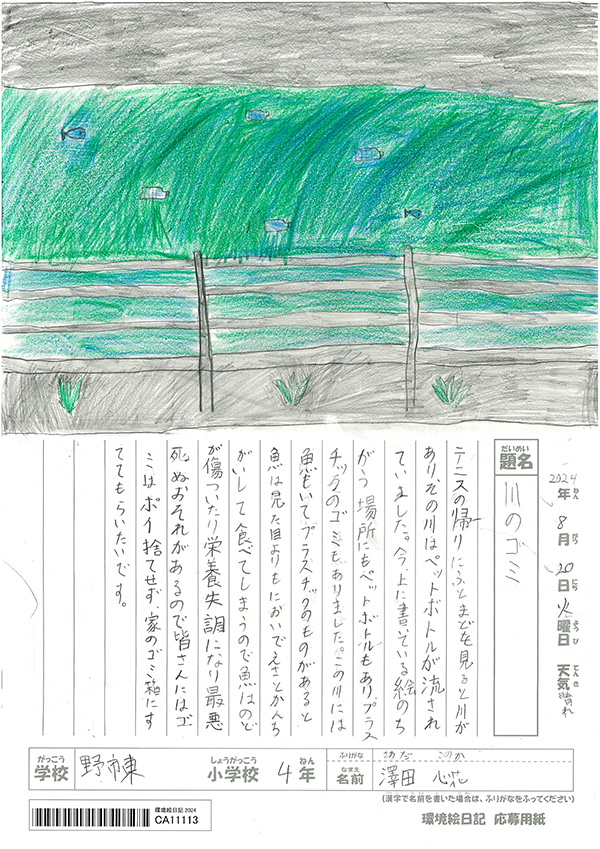 2024年ねん8月がつ20日にち火曜日ようび天気てんき晴れ
だいめい
題名
川のゴミ
テニスの帰りにふとまどを見ると川が
ありその川はペットボトルが流され
ていました。今、上に書いている絵のち
がう場所にもペットボトルもあり、プラス
チックのゴミもありました。この川には
魚もいてプラスチックのものがあると
魚は見た目よりもにおいでえさとかんち
がいして食べてしまうので魚はのど
が傷ついたり栄養失調になり最悪
死ぬおそれがあるので皆さんにはゴ
ミはポイ捨てせず、家のゴミ箱にす
ててもらいたいです。
がっこう
学校
野市東
しょうがっこう
小学校
4
ねん
年
ふりがな
さわだ このか
なまえ
名前
澤田 心花
(漢字で名前を書いた場合は、ふりがなをふってください)
環境絵日記 2024
CA11113
環境絵日記 応募用紙